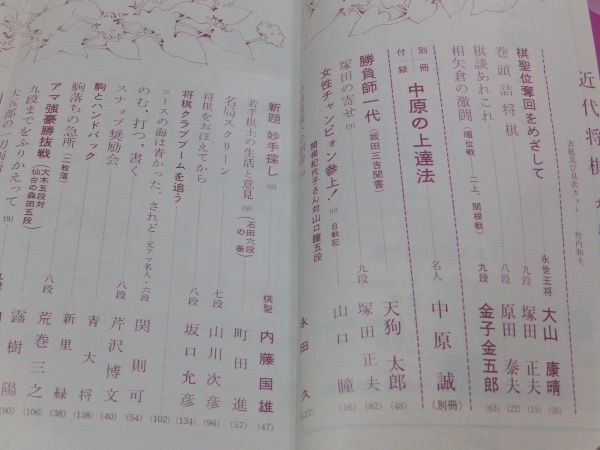 近代将棋
表紙及び目次カット　竹内和夫
棋聖位奪回をめざして　永世王将　大山康晴(26)
巻頭詰将棋　八段　塚田正夫(15)
棋談あれこれ　八段　原田泰夫(22)
相矢倉の激闘(順位戦　二上、関根戦)　九段　金子金五郎(63)
別冊付録　中原の上達法　名人　中原誠(別冊)
勝負師一代(坂田三吉聞書)　天狗太郎(48)
塚田の寄せ(9)　九段　塚田正夫(82)
女性チャンピオン参上!　自戦記　山口瞳(16)
関根紀代子さん対山口瞳五段
永田　久(127)
新題 妙手探し　棋聖　内藤国雄(47)
若手棋士の生活と意見(9)(石田六段の巻)　町田進(57)
名局スクリーン　七段　山川次彦(96)
将棋をおぼえてから　八段　坂口允彦(134)
将棋クラブブームを追う(102)
ニースの海は青かった、されど(元アマ名人・六段)　関則可(54)
のむ、打つ、書く　八段　芹沢博文(40)
スナップ奨励会　青大将(138)
駒とハンドバック　新里緑(38)
駒落ちの急所(二枚落)　八段　荒巻三之(106)
アマ強豪勝抜戦(大木五段対仙台の森田五段)　露樹陽(90)
九段までをふりかえって(9)